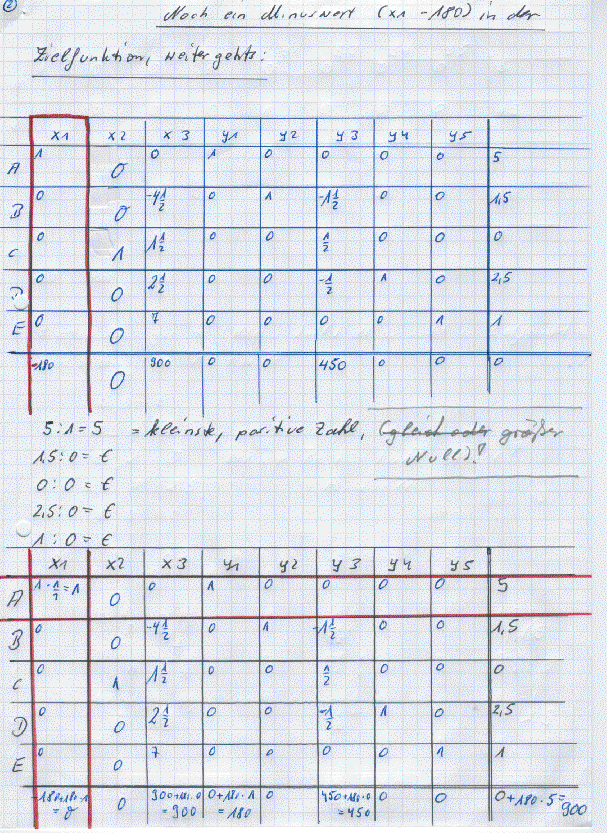 2
Noch ein Minuswert (x1 -180) in der
Zielfunktion, weiter gehts:
x1 x2 x3 y1 y2 y3 y4 y5
A 1 0 0 1 0 0 0 0 5
B 0 0 -4 1/2 0 1 -1 1/2 0 0 1,5
C 0 1 1 1/2 0 0 1/2 0 0 0
D 0 0 2 1/2 0 0 -1/2 1 0 2,5
E 0 0 7 0 0 0 0 1 1
-180 0 900 0 0 450 0 0 0
5:1=5 = kleinste, positive Zahl, (gleich oder größer
Null)!
1,5:0= €
0:0= €
2,5:0= €
1:0= €
x1 x2 x3 y1 y2 y3 y4 y5
A 1·1/1=1 0 0 1 0 0 0 0 5
B 0 0 -4 1/2 0 1 -1 1/2 0 0 1,5
C 0 1 1 1/2 0 0 1/2 0 0 0
D 0 0 2 1/2 0 0 -1/2 1 0 2,5
E 0 0 7 0 0 0 0 1 1
-180+180·1 0 900+180·0 0+180·1 0 450+180·0 0 0 0+180·5=
=0 =900 =180 =450 900